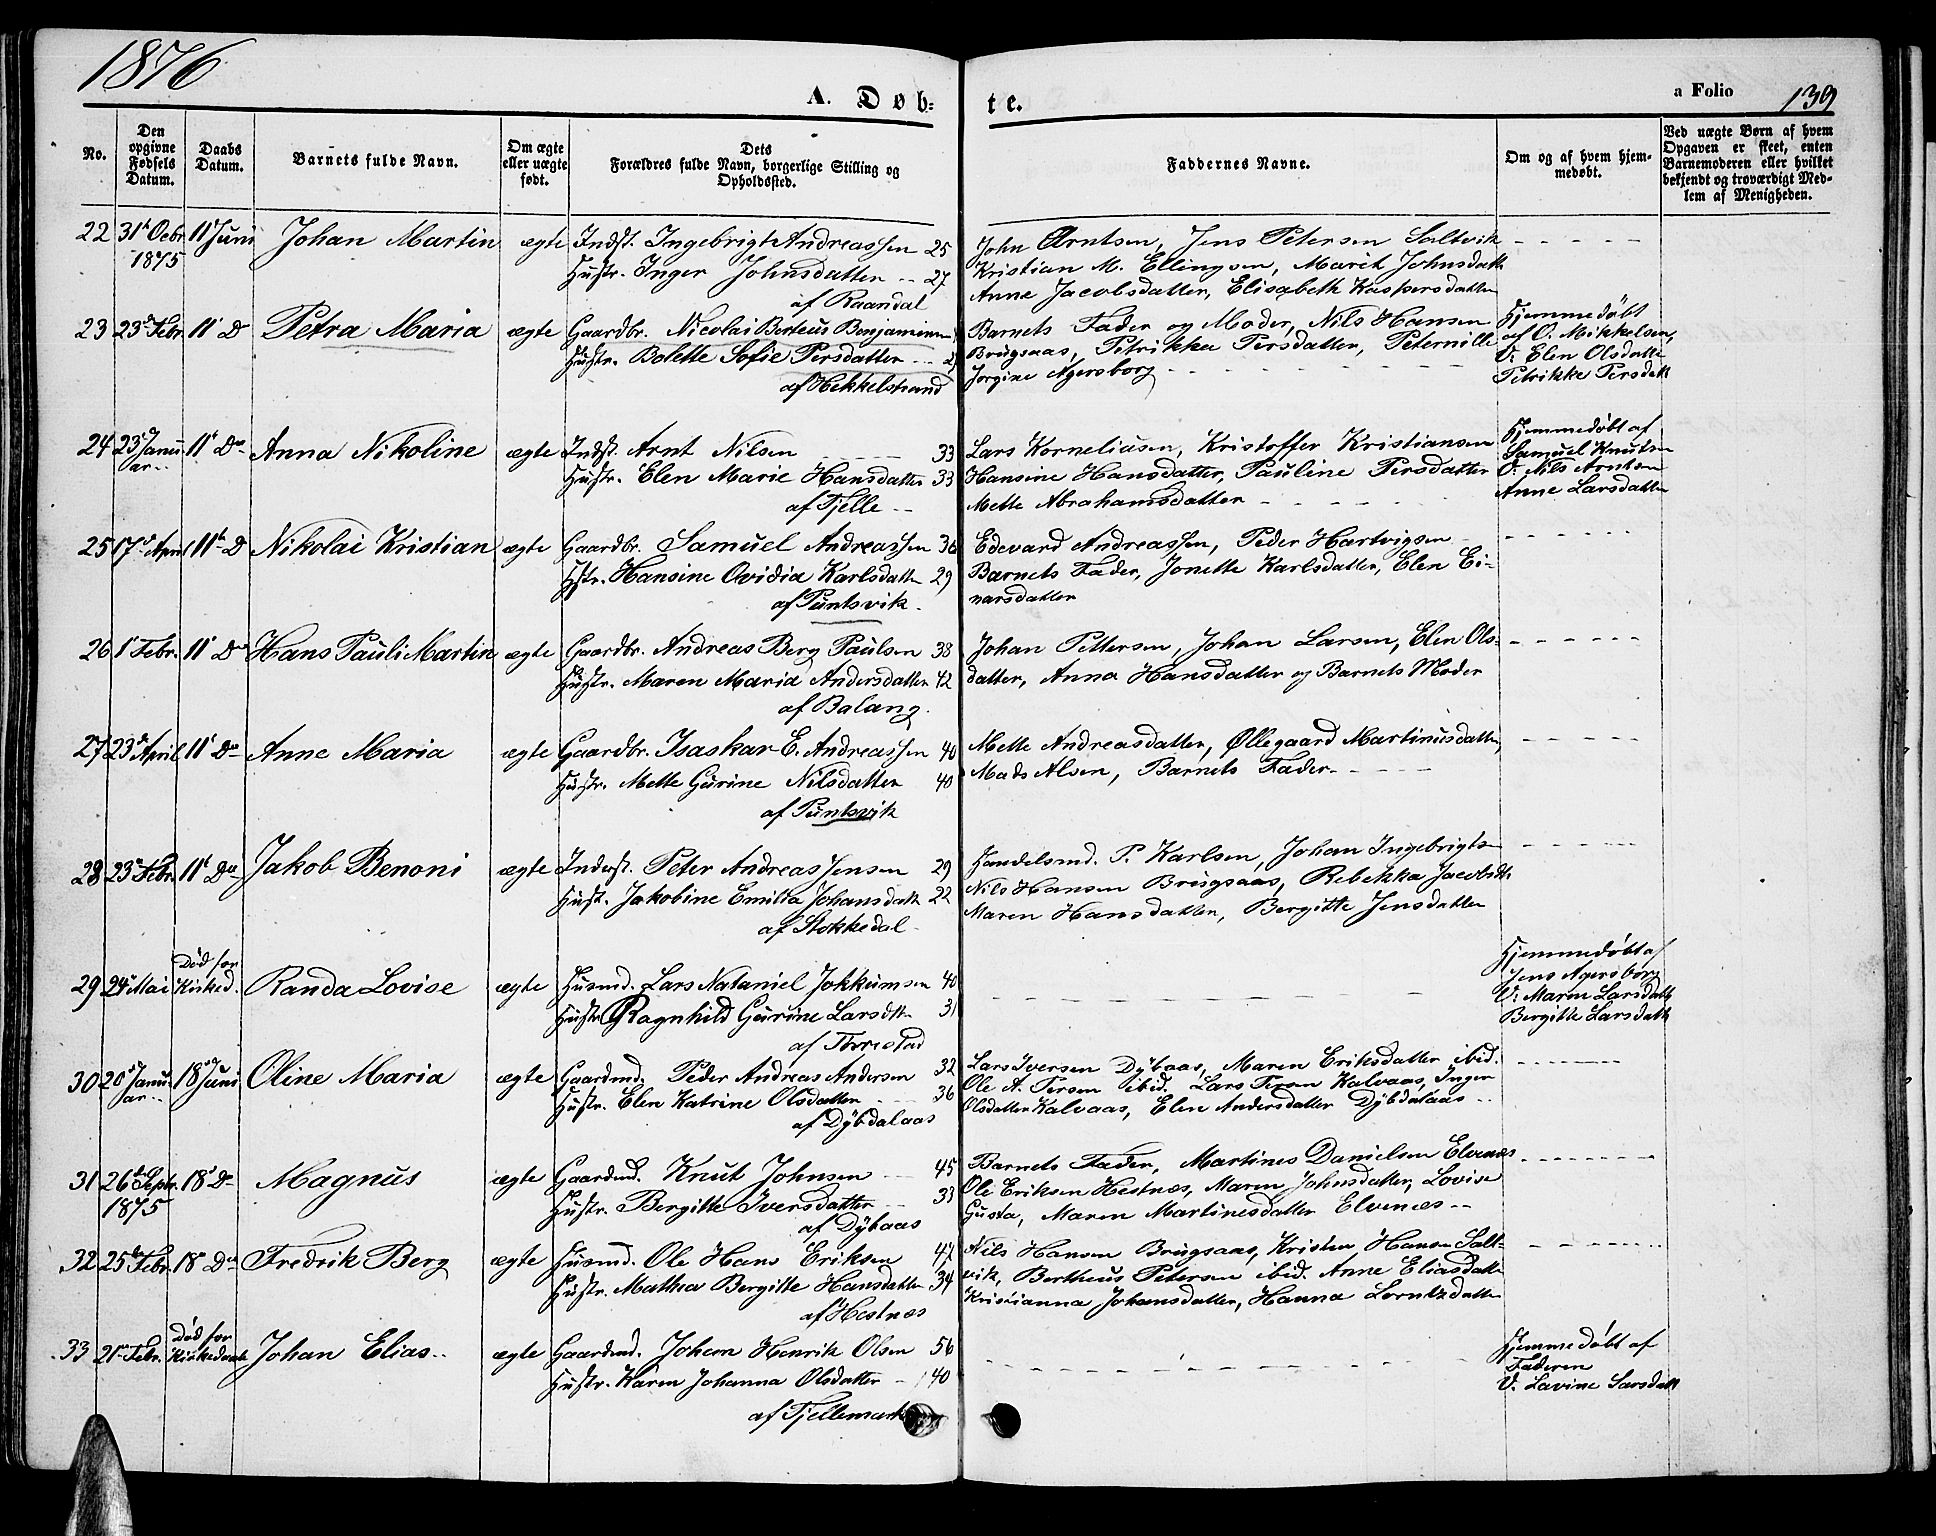 1876
A. Døb-
te.
a Folio 139
No.
Den opgivne Fødsels Datum.
Daabs Datum.
Barnets fulde Navn.
Om ægte eller uægte født.
Dets Forældres fulde Navn, borgerlige Stilling og Opholdssted.
Faddernes Navne.
Om og af hvem hjemmedøbt.
Ved uægte Børn af hvem Opgaven er skeet, enten Barnemoderen eller hvilket bekjendt og troværdigt Medlem af Menigheden.
22 31t Octbr 1875 11t Juni Johan Martin ægte Indst. Ingebrigt Andreassen 25
Hustr. Inger Johnsdatter 27
af Raandal
John Arntsen, Jens Petersen Saltvik
Kristian M. Ellingsen, Marit Johnsdatt
Anne Jacobsdatter, Elisabeth Kaspersdatter
23 23d Febr 11t Do Petra Maria ægte Gaardbr. Nicolai Berteus Benjaminsen
Hustr. Bolette Sofie Persdatter
af Hekkelstrand
Barnets Fader og Moder, Nils Hansen
Brugsaas, Petrikka Persdatter, Peternille
Jorgine Agersborg
Hjemmedøbt
af O. Mikkelsen,
V: Elen Olsdatte
Petrikke Persdatt
24 23d Januar 11t Do Anna Nikoline ægte Indst. Arnt Nilsen 33
Hustr. Elen Marie Hansdatter 33
af Fjelle
Lars Korneliusen, Kristoffer Kristiansen
Hansine Hansdatter, Pauline Persdatter
Mette Abrahamsdatter
Hjemmedøbt af
Samuel Knutsen
V. Nils Arntsen
Anne Larsdatter
25 17d April 11t D Nikolai Kristian ægte Gaardbr. Samuel Andreassen 36
Hstr. Hansine Ovidia Karlsdatter 29
af Puntsvik.
Edevard Andreassen, Peder Hartvigsen
Barnets Fader, Jonette Karlsdatter, Elen Ei-
narsdatter
26 1t Febr. 11t Do Hans Pauli Martin ægte Gaardbr. Andreas Berg Paulsen 38
Hustr. Maren Maria Andersdatter 42
af Balang.
Johan Pettersen, Johan Larsen, Elen Ols-
datter, Anna Hansdatter og Barnets Moder
27 23d April 11t Do Anne Maria ægte Gaardbr. Isaskar E. Andreassen 40
Hustr. Mette Gurine Nilsdatter 40
af Puntsvik
Mette Andreasdatter, Øllegaard Martinusdatter,
Mads Alsen, Barnets Fader
28 23d Febr. 11t Do Jakob Benoni ægte Inderst. Peter Andreas Jensen 29
Hust. Jakobine Emilia Johansdatt 22
af Stokkedal
Handelsmd. P. Karlsen, Johan Ingebrigts
Nils Hansen Brugsaas, Rebekka Jacobsdt
Maren Hansdatter, Bergitte Jensdatter
29 24d Mai Død før Kirked. Randa Lovise ægte Husmd. Lars Nataniel Jokkumsen 40
Hustr. Ragnhild Gurine Larsdt 31
af Forrestad
Hjemmedøbt af
Jens Agersborg
V: Maren Larsdatt
Bergitte Larsdatt
30 20d Januar 18d Juni Oline Maria ægte Gaardmd. Peder Andreas Andersen 32
Hustr. Elen Katrine Olsdatter 36
af Dybdalaas
Lars Iversen Dybaas, Maren Eriksdatter ibid.
Ole A. Persen ibid. Lars Person Kalvaas, Inger
Olsdatter Kalvaas, Elen Andersdatter Dybdalaas
31 26d Septr. 1875 18d Do Magnus ægte Gaardmd. Knut Johnsen 45
Hustr. Bergitte Iversdatter 33
af Dybaas
Barnets Fader, Martines Danielsen Elvenæs
Ole Eriksen Hestnæs, Maren Johnsdatter, Lovise
Gusta, Maren Martinesdatter Elvenæs
32 25d Febr. 18d Do Fredrik Berg ægte Husmd. Ole Hans Eriksen 47
Hustr. Mathea Bergitte Hansdatter 34
af Hestnæs
Nils Hansen Brugsaas, Kristen Hansen Salt-
vik, Bertheus Petersen ibid. Anne Eliasdatt
Kristianna Johansdatter, Hanna Lorntzdatter
33 21d Febr. Død før Kirkedaab Johan Elias ægte Gaardmd. Johan Henrik Olsen 56
Hustr. Karen Johanna Olsdatter 40
af Fjellemark
Hjemmedøbt af
Faderen
V. Lavine Larsdatt